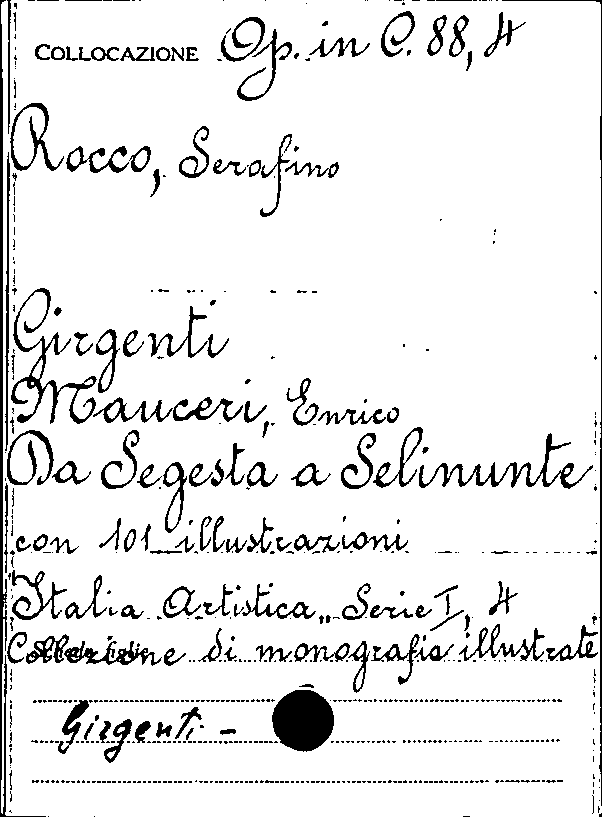 COLLOCAZIONE Op. in C. 88, 4
Rocco, Serafino
Girgenti
Mauceri, Enrico
Da Segesta a Selinunte
con 101 illustrazioni
Italia Artistica,, Serie I, 4
Collezione di monografie illustrate
Girgenti -